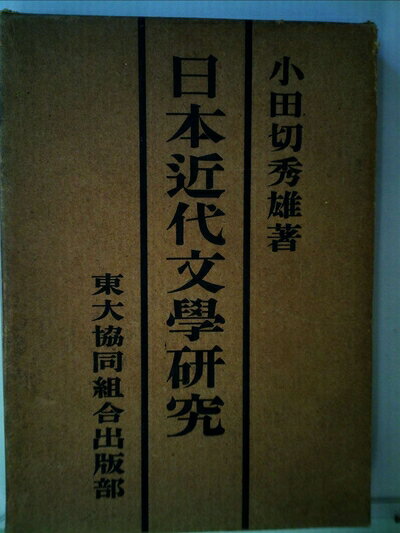 小田切秀雄著
日本近代文學研究
東大協同組合出版部